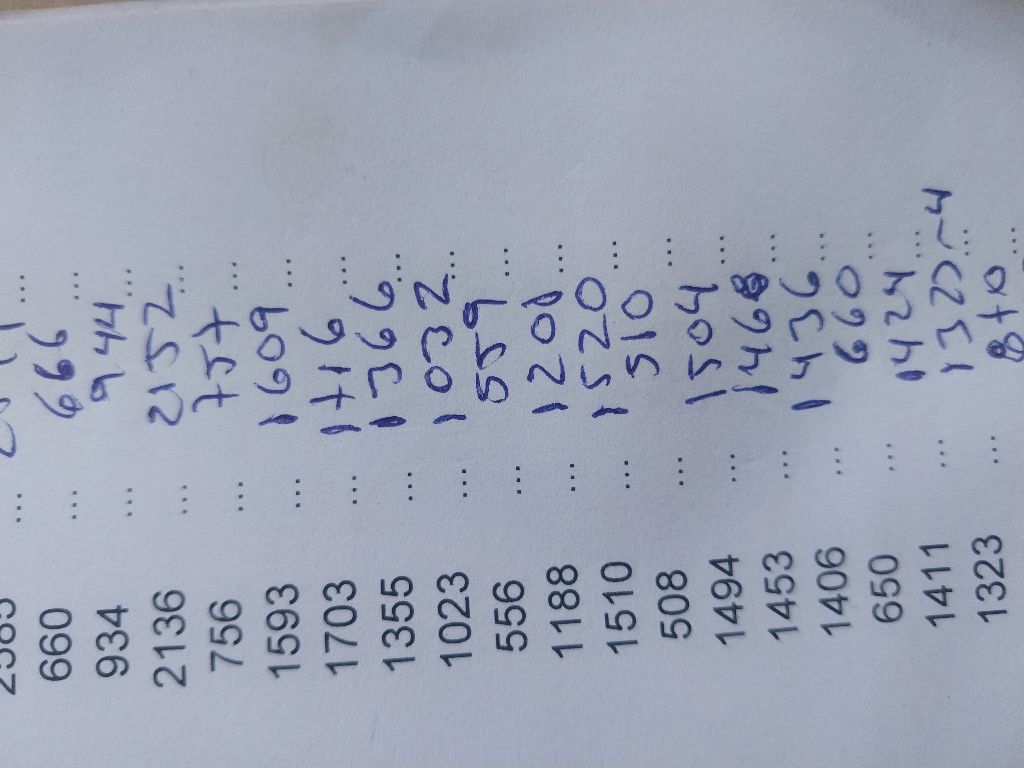 660 ... 666 ...
934 ... 944 ...
2136 ... 2152 ...
756 ... 757 ...
1593 ... 1609 ...
1703 ... 1716 ...
1355 ... 1366 ...
1023 ... 1032 ...
556 ... 559 ...
1188 ... ...
1510 ... 1520 ...
508 ... 510 ...
1494 ... 1504 ...
1453 ... 1468 ...
1406 ... 1436 ...
650 ... 660 ...
1411 ... 1424 ...
1323 ... -4 ...
870